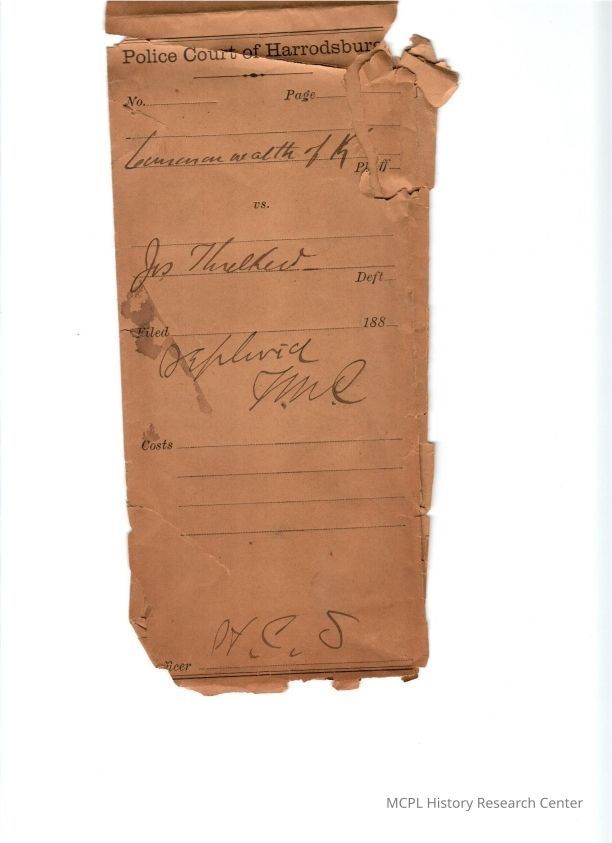 Police Court of Harrodsburg
No. Page
Commonwealth of Ky
Pltff
vs.
Jos Threlkeld
Deft
Filed 188
Costs
H. C. S
ficer
MCPL History Research Center